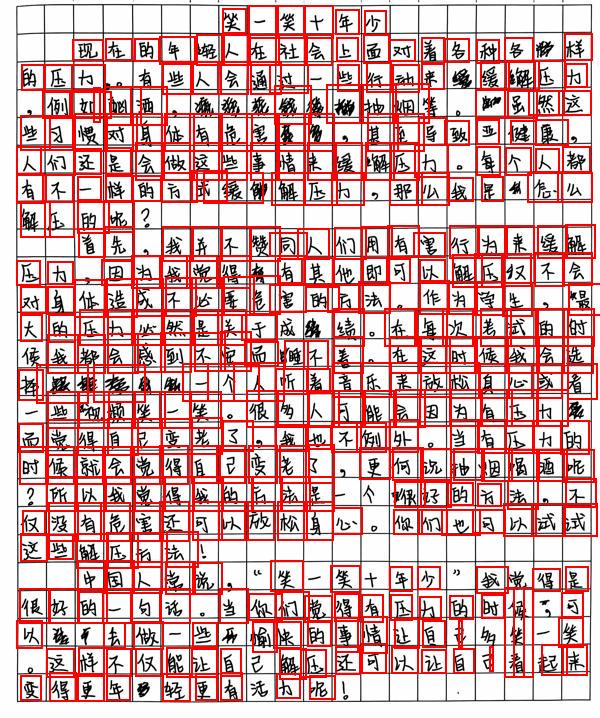 笑一笑十年少
现在的年轻人在社会上面对着各种各样
的压力。有些人会通过一些行动来缓解压力
,例如喝酒,抽烟等。虽然这
些习惯对身体有危害,甚至导致亚健康,
人们还是会做这些事情来缓解压力。每个人都
有不一样的方式缓解压力,那么我是怎么
解压的呢?
首先,我并不赞同人们用有害行为来缓解
压力,因为我觉得有其他即可以解压又不会
对身体造成不必要危害的方法。作为学生,最
大的压力必然是关于成绩。在每次考试的时
候我都会感到不安而睡不着。在这时候我会选
择一个人听着音乐来放松身心或看
一些视频笑一笑。很多人可能会因为有压力
而觉得自己变老了,我也不例外。当有压力的
时候就会觉得自己变老了,更何况抽烟喝酒呢
?所以我觉得我的方法是一个很好的方法。不
仅没有危害还可以放松身心。你们也可以试试
这些解压方法!
中国人常说,“笑一笑十年少”我觉得是
很好的一句话。当你们觉得有压力的时候,可
以去做一些愉快的事情让自己多笑一笑
。这样不仅能让自己解压还可以让自己看起来
变得更年轻更有活力呢!